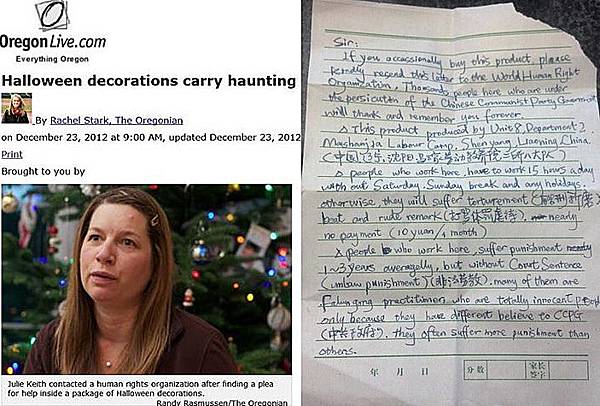 OregonLive.com
Everything Oregon
Halloween decorations carry haunting
By Rachel Stark, The Oregonian
on December 23, 2012 at 9:00 AM, updated December 23, 2012
Print
Brought to you by
Julie Keith contacted a human rights organization after finding a plea
for help inside a package of Halloween decorations.
Randy Rasmussen/The Oregonian
Sir:
If you occassionally buy this product, please
kindly resend this letter to the World Human Right
Organization. Thousands people here who are under
the persicution of the Chinese Communist Party Government
will thank and remember you forever.
This product produced by Unit 8, Department 2,
Mashanjia Labour Camp, Shen yang, Liaoning, China.
(中国, 辽宁, 沈阳, 马三家劳动教养院二所八大队)
people who work here, have to work 15 hours a day
with out Saturday, Sunday break and any holidays,
otherwise, they will suffer torturement
beat and rude remark nearly
no payment (10 yuan/1 month)
people who work here, suffer punishment
1~3 years averagelly, but without Court Sentence
(unlaw punishment) (非法劳教), many of them are
Falun gong practitioner, who are totally innocent people
only because they have different believe to CCPG
(中共政府), they often suffer more punishment than
others.
年 月 日
分数
家长
签字